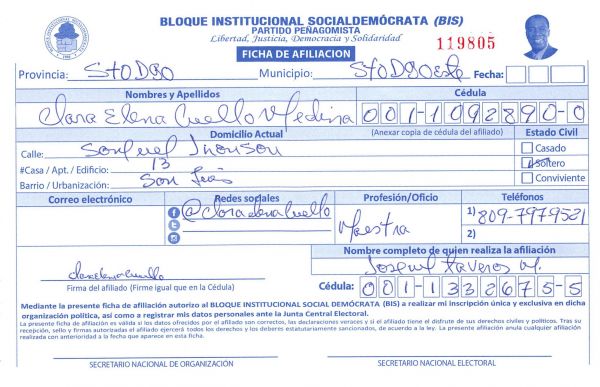 BLOQUE INSTITUCIONAL SOCIALDEMÓCRATA (BIS)
PARTIDO PEÑAGOMISTA
Libertad, Justicia, Democracia y Solidaridad
FICHA DE AFILIACION
119805
Provincia: StoDgo Municipio: StoDgoeste Fecha:
Nombres y Apellidos Cédula
Clara Elena Cuello Medina 001-1092890-0
Domicilio Actual (Anexar copia de cédula del afiliado) Estado Civil
Calle: Casado
#Casa / Apt. / Edificio: 13 Soltero
Barrio / Urbanización: San Luis Conviviente
Correo electrónico Redes sociales Profesión/Oficio Teléfonos
@claraelenaCuello Maestra 1) 809-7979521
2)
Nombre completo de quien realiza la afiliación
claraelenacuello
Firma del afiliado (Firme igual que en la Cédula) Cédula: 001-1332675-5
Mediante la presente ficha de afiliación autorizo al BLOQUE INSTITUCIONAL SOCIAL DEMÓCRATA (BIS) a realizar mi inscripción única y exclusiva en dicha
organización política, así como a registrar mis datos personales ante la Junta Central Electoral.
La presente ficha de afiliación es válida si los datos ofrecidos por el afiliado son correctos, las declaraciones veraces y si el afiliado tiene el disfrute de sus derechos civiles y políticos. Tras su
recepción, sello y firmas autorizadas el afiliado ejercerá todos los derechos y los deberes estatutariamente sancionados, de acuerdo a la ley. La presente afiliación anula cualquier afiliación
realizada con anterioridad a la fecha que aparece en esta ficha.
SECRETARIO NACIONAL DE ORGANIZACIÓN SECRETARIO NACIONAL ELECTORAL